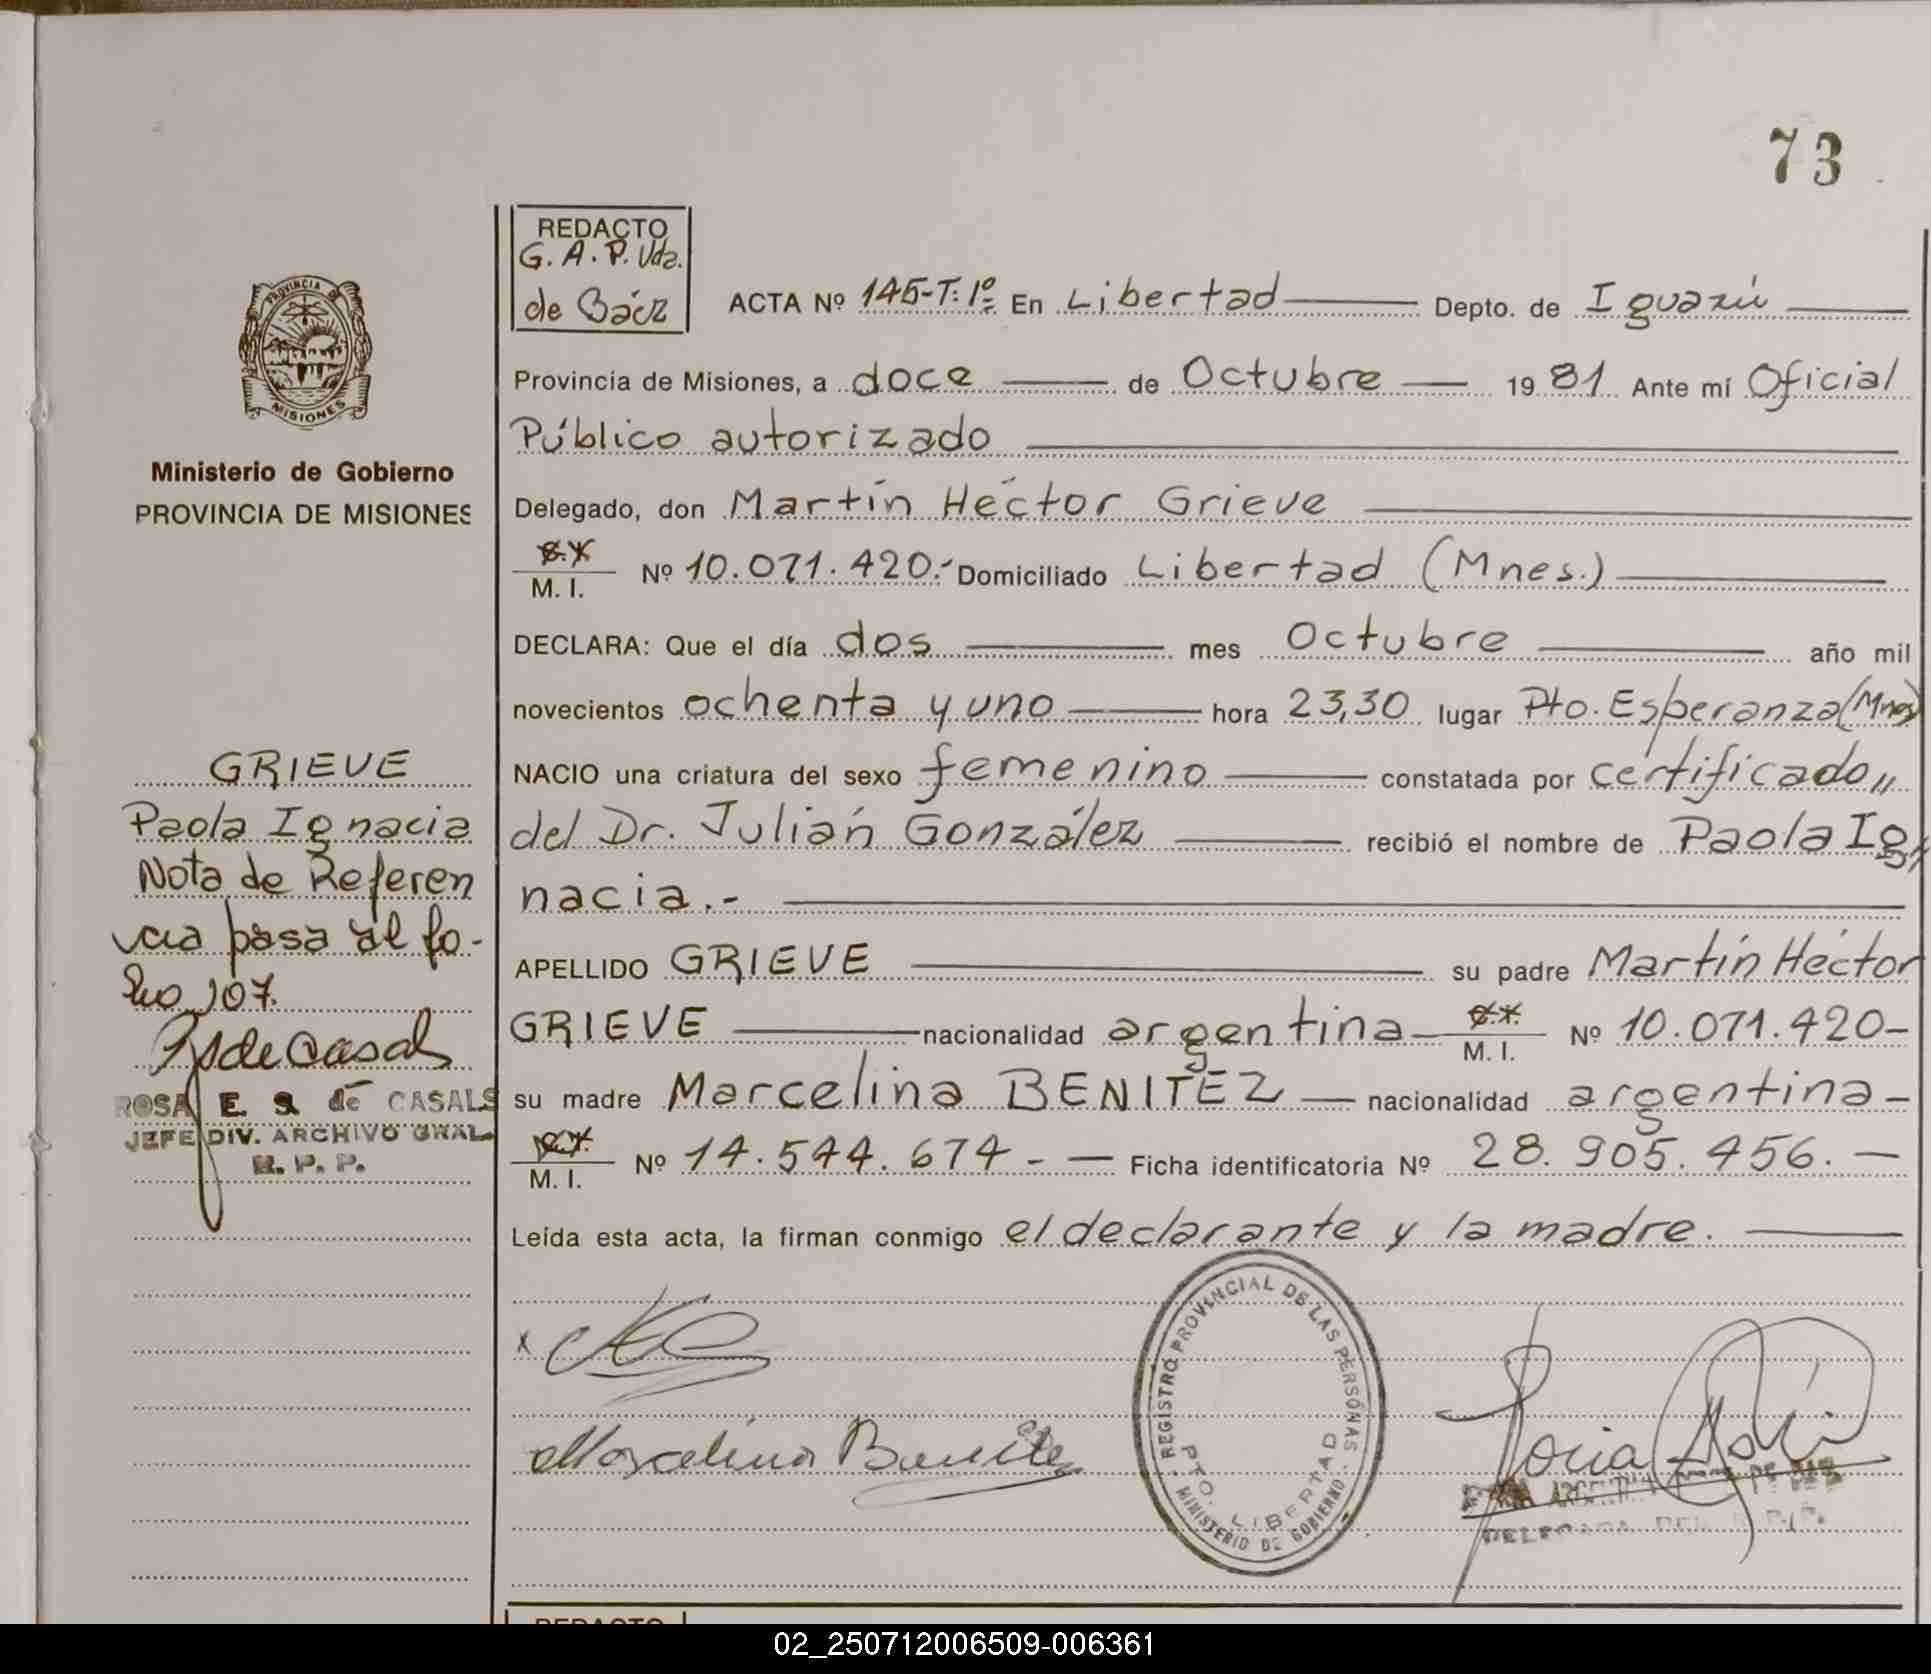 73
REDACTO
G. A. P. Vda.
de Báez
PROVINCIA DE
MISIONES
ACTA Nº 145-T: 1º En Libertad Depto. de Iguazú
Provincia de Misiones, a doce de Octubre 1981 Ante mí Oficial
Público autorizado
Ministerio de Gobierno
PROVINCIA DE MISIONES
Delegado, don Martín Héctor Grieve
M. I. Nº 10.071.420.- Domiciliado Libertad (Mnes.)
DECLARA: Que el día dos mes Octubre año mil
novecientos ochenta y uno hora 23,30 lugar Pto. Esperanza (Mnes)
NACIO una criatura del sexo femenino constatada por certificado,,
del Dr. Julián González recibió el nombre de Paola Ig,,
nacia.-
APELLIDO GRIEVE su padre Martín Héctor
GRIEVE nacionalidad argentina M. I. Nº 10.071.420-
su madre Marcelina BENITEZ nacionalidad argentina-
M. I. Nº 14.544.674.- Ficha identificatoria Nº 28.905.456.
Leída esta acta, la firman conmigo el declarante y la madre.
GRIEVE
Paola Ignacia
Nota de Referen
cia pasa al fo-
lio 107.
ROSA E. S. de CASALS
JEFE DIV. ARCHIVO GRAL.
R. P. P.
x
Marcelina Benitez
REGISTRO PROVINCIAL DE LAS PERSONAS
PTO. LIBERTAD
MINISTERIO DE GOBIERNO
DELEGADA DEL R. P. P.
REDACTO
02_250712006509-006361